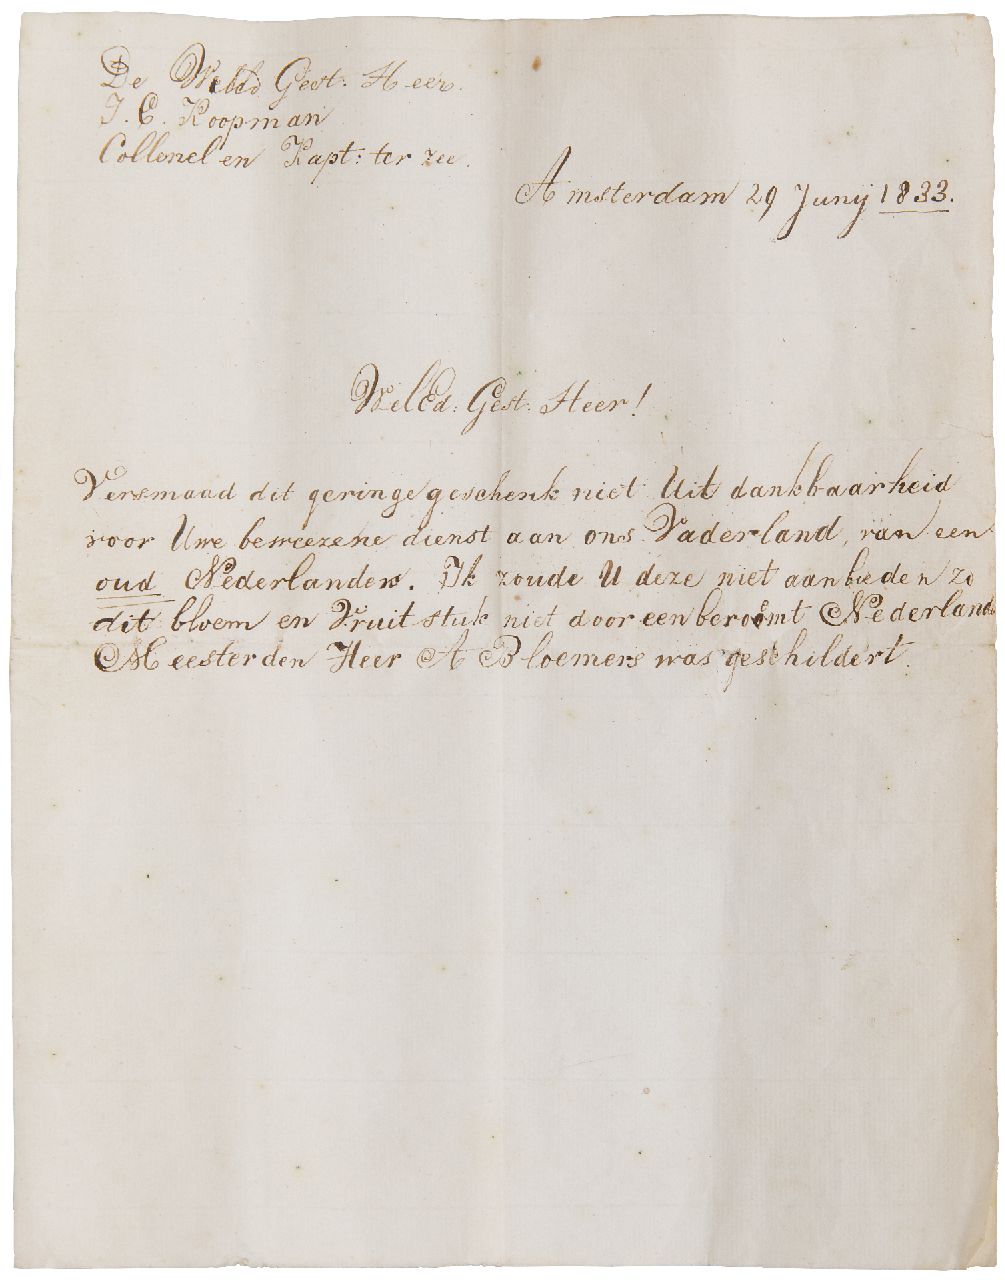 De WelEd. Gest: Heer.
J. C. Koopman
Collonel en Kapt: ter zee.
Amsterdam 29 Junij 1833.
WelEd: Gest: Heer!
Versmaad dit geringe geschenk niet Uit dankbaarheid
voor Uwe beweezene dienst aan ons Vaderland, van een
oud Nederlander. Ik zoude U deze niet aanbieden zo
dit bloem en Vruit stuk niet door een beroemt Nederlands
Meester den Heer A Bloemers was geschildert.